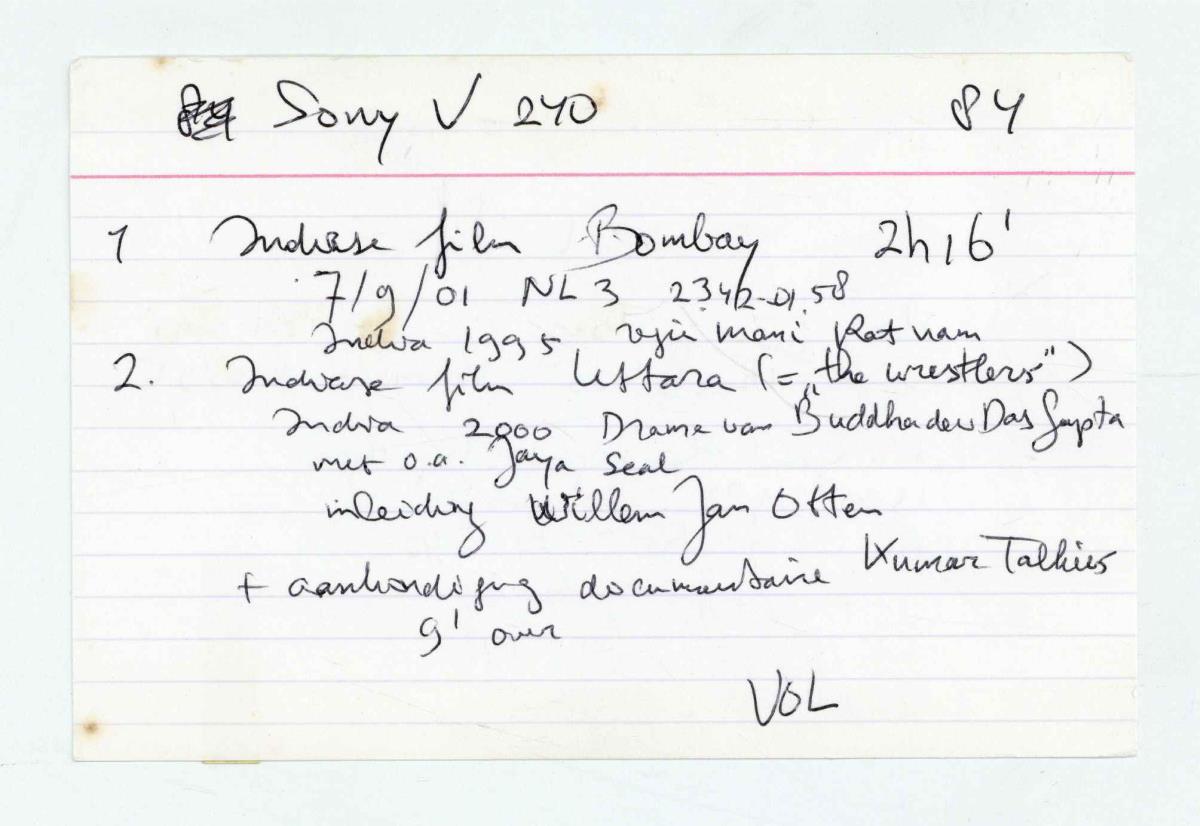 Sony V 240 84
1 Indiase film Bombay 2h16'
7/9/01 NL 3 23.42-01.58
India 1995 regie Mani Ratnam
2. Indiase film Uttara (= "the wrestlers")
India 2000 Drama van Buddhadev Das Gupta
met o.a. Jaya Seal
inleiding Willem Jan Otten
+ aankondiging documentaire Kumar Talkies
9' over
VOL